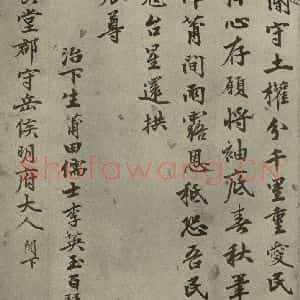 守土權分千里重愛民
心存願將袖底春秋筆
莆間雨露恩秪恐吾民
台星還拱
尊
治下生莆田儒士李英玉百
堂郡守岳侯明府大人閣下
Shufawang.CN